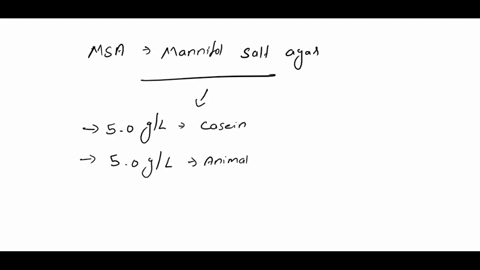 MSA → Mannitol salt agar
→ 5.0 g/L → Casein
→ 5.0 g/L → Animal